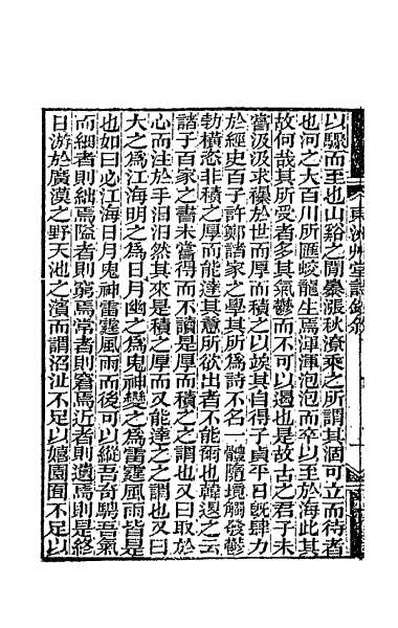 東洲艸堂詩鈔敘
以驟而至也山谿之間暴漲秋潦乘之所謂其涸可立而待者
也河之大百川所匯蛟龍生焉渾渾泡泡而卒以至於海此其
故何哉其所受者多其氣鬱而不可以遏也是故古之君子未
嘗汲汲求襮於世而厚而積之以竢其自得子貞平日旣肆力
於經史百子許鄭諸家之學其所爲詩不名一體隨境觸發鬱
勃橫恣非積之厚而能達其意所欲出者不能爾也韓退之云
諸子百家之書未嘗得而不讀是厚而積之之謂也又曰取於
心而注於手汨汨然其來是積之厚而又能達之之謂也又曰
大之爲江海明之爲日月幽之爲鬼神變之爲雷霆風雨皆是
也如曰必江海日月鬼神雷霆風雨而後可以縱吾奇騁吾氣
而細者則絀焉隘者則窮焉常者則窘焉近者則遺焉則是終
日游於廣漠之野天池之濱而謂沼沚不足以嬉園囿不足以